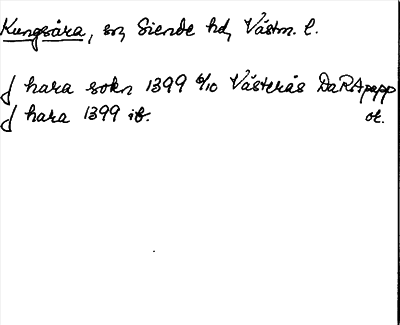 Kungsåra, sn, Siende hd, Västm. l.
J hara sokn 1399 6/10 Västerås DaRApapp
or.
J hara 1399 ib.